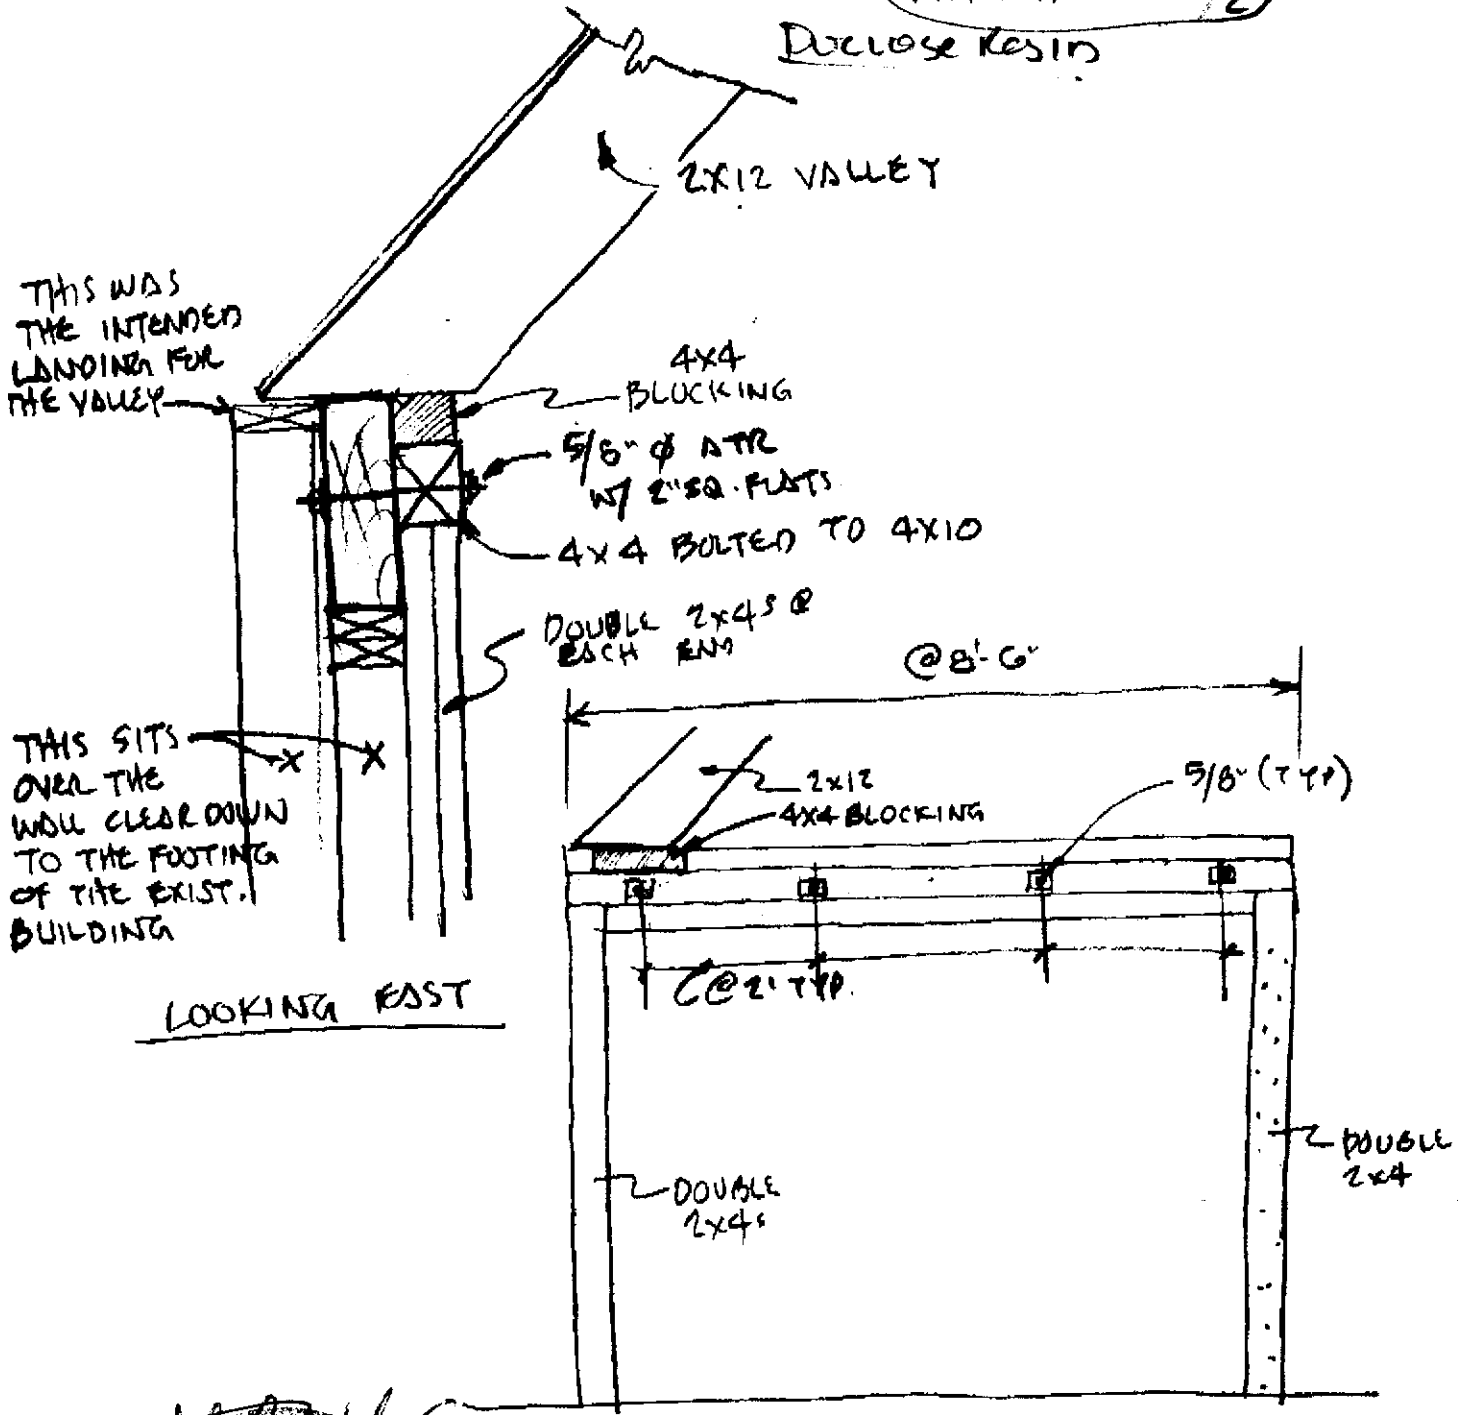 2X12 VALLEY
THIS WAS
THE INTENDED
LANDING FOR
THE VALLEY
4X4
BLOCKING
5/8" Ø ATR
W/ 2" SQ. FLATS
4X4 BOLTED TO 4X10
DOUBLE 2X4S @
EACH END
@ 8'-6"
THIS SITS
OVER THE
WALL CLEAR DOWN
TO THE FOOTING
OF THE EXIST.
BUILDING
2X12
4X4 BLOCKING
5/8" (TYP)
@ 2' TYP.
LOOKING EAST
DOUBLE
2X4S
DOUBLE
2X4